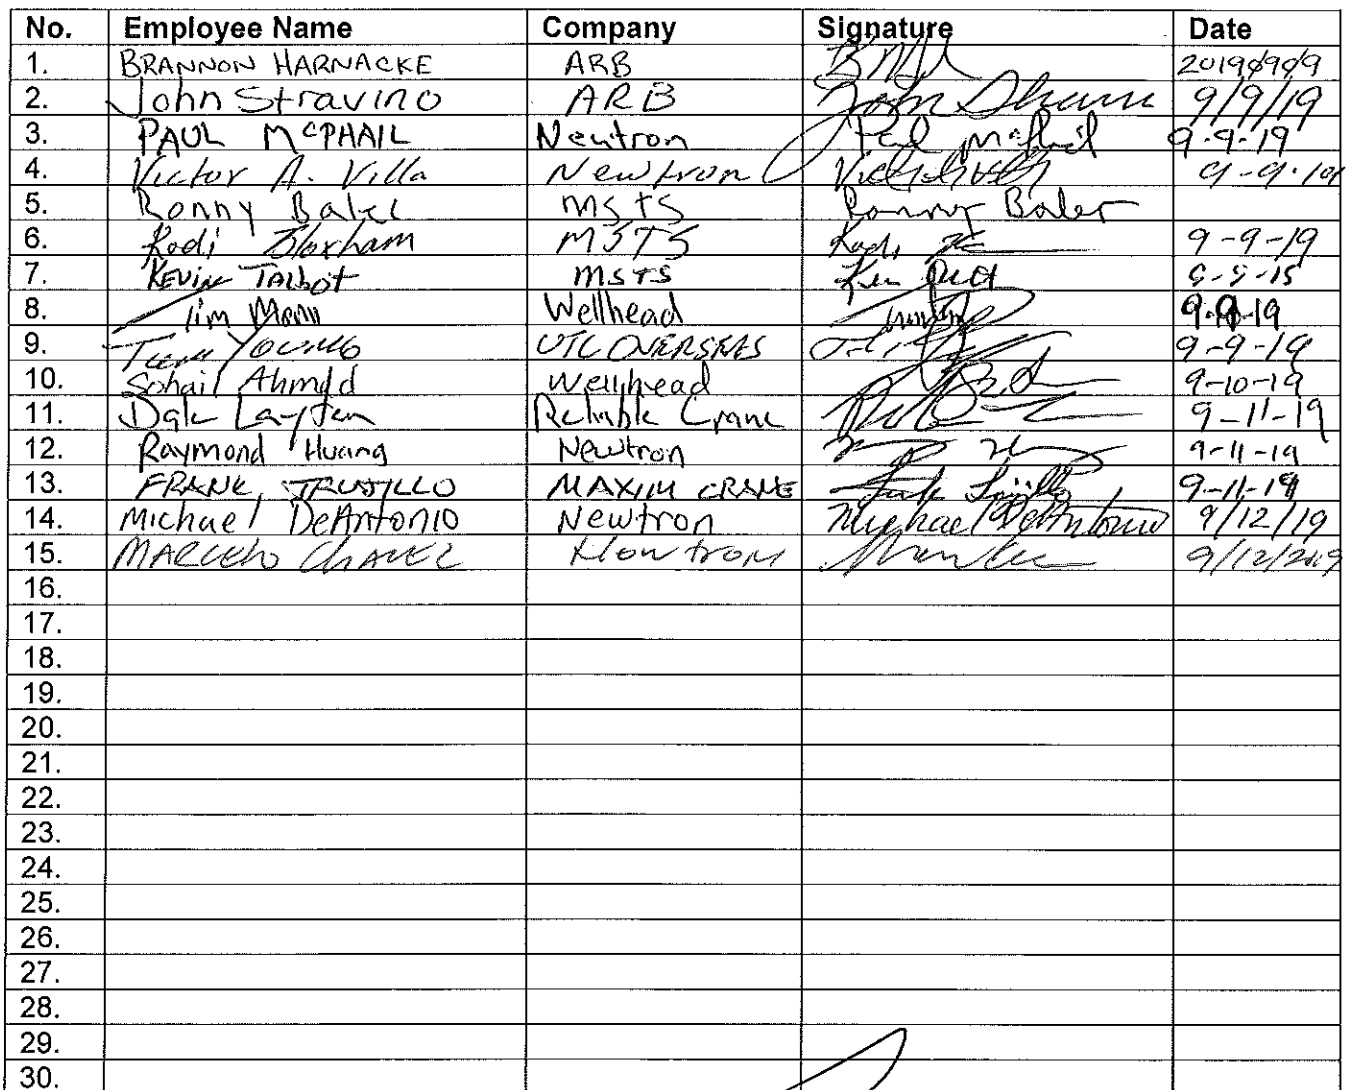 No. Employee Name Company Signature Date
1. BRANNON HARNACKE ARB 20190909
2. John Stravino ARB John 9/9/19
3. PAUL MCPHAIL Newtron Paul McPhail 9-9-19
4. Victor A. Villa Newtron 9-9-19
5. Ronny Baker MSTS Ronny Baker
6. Kodi Bloxham MSTS Kodi 9-9-19
7. KEVIN TALBOT MSTS 9-9-19
8. Tim Mann Wellhead 9-9-19
9. Young UTC OVERSEAS 9-9-19
10. Sohail Ahmed Wellhead 9-10-19
11. Dale Layton Reliable Crane 9-11-19
12. Raymond Huang Newtron 9-11-19
13. FRANK TRUJILLO MAXIM CRANE Frank Trujillo 9-11-19
14. Michael DeAntonio Newtron Michael DeAntonio 9/12/19
15. MARCELO CHAVEZ Newtron 9/12/2019
16.
17.
18.
19.
20.
21.
22.
23.
24.
25.
26.
27.
28.
29.
30.